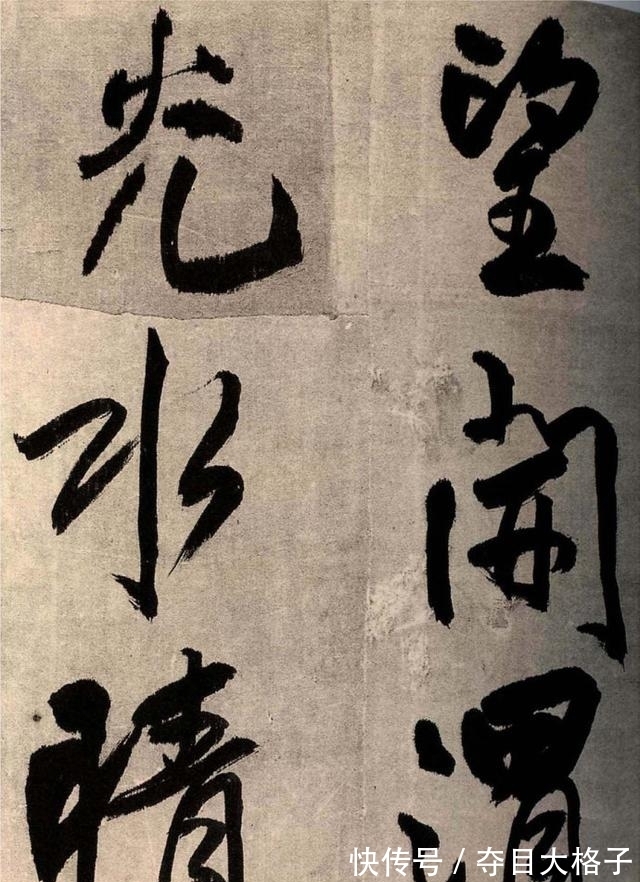 望開渭
光水晴
快传号 / 夺目大格子